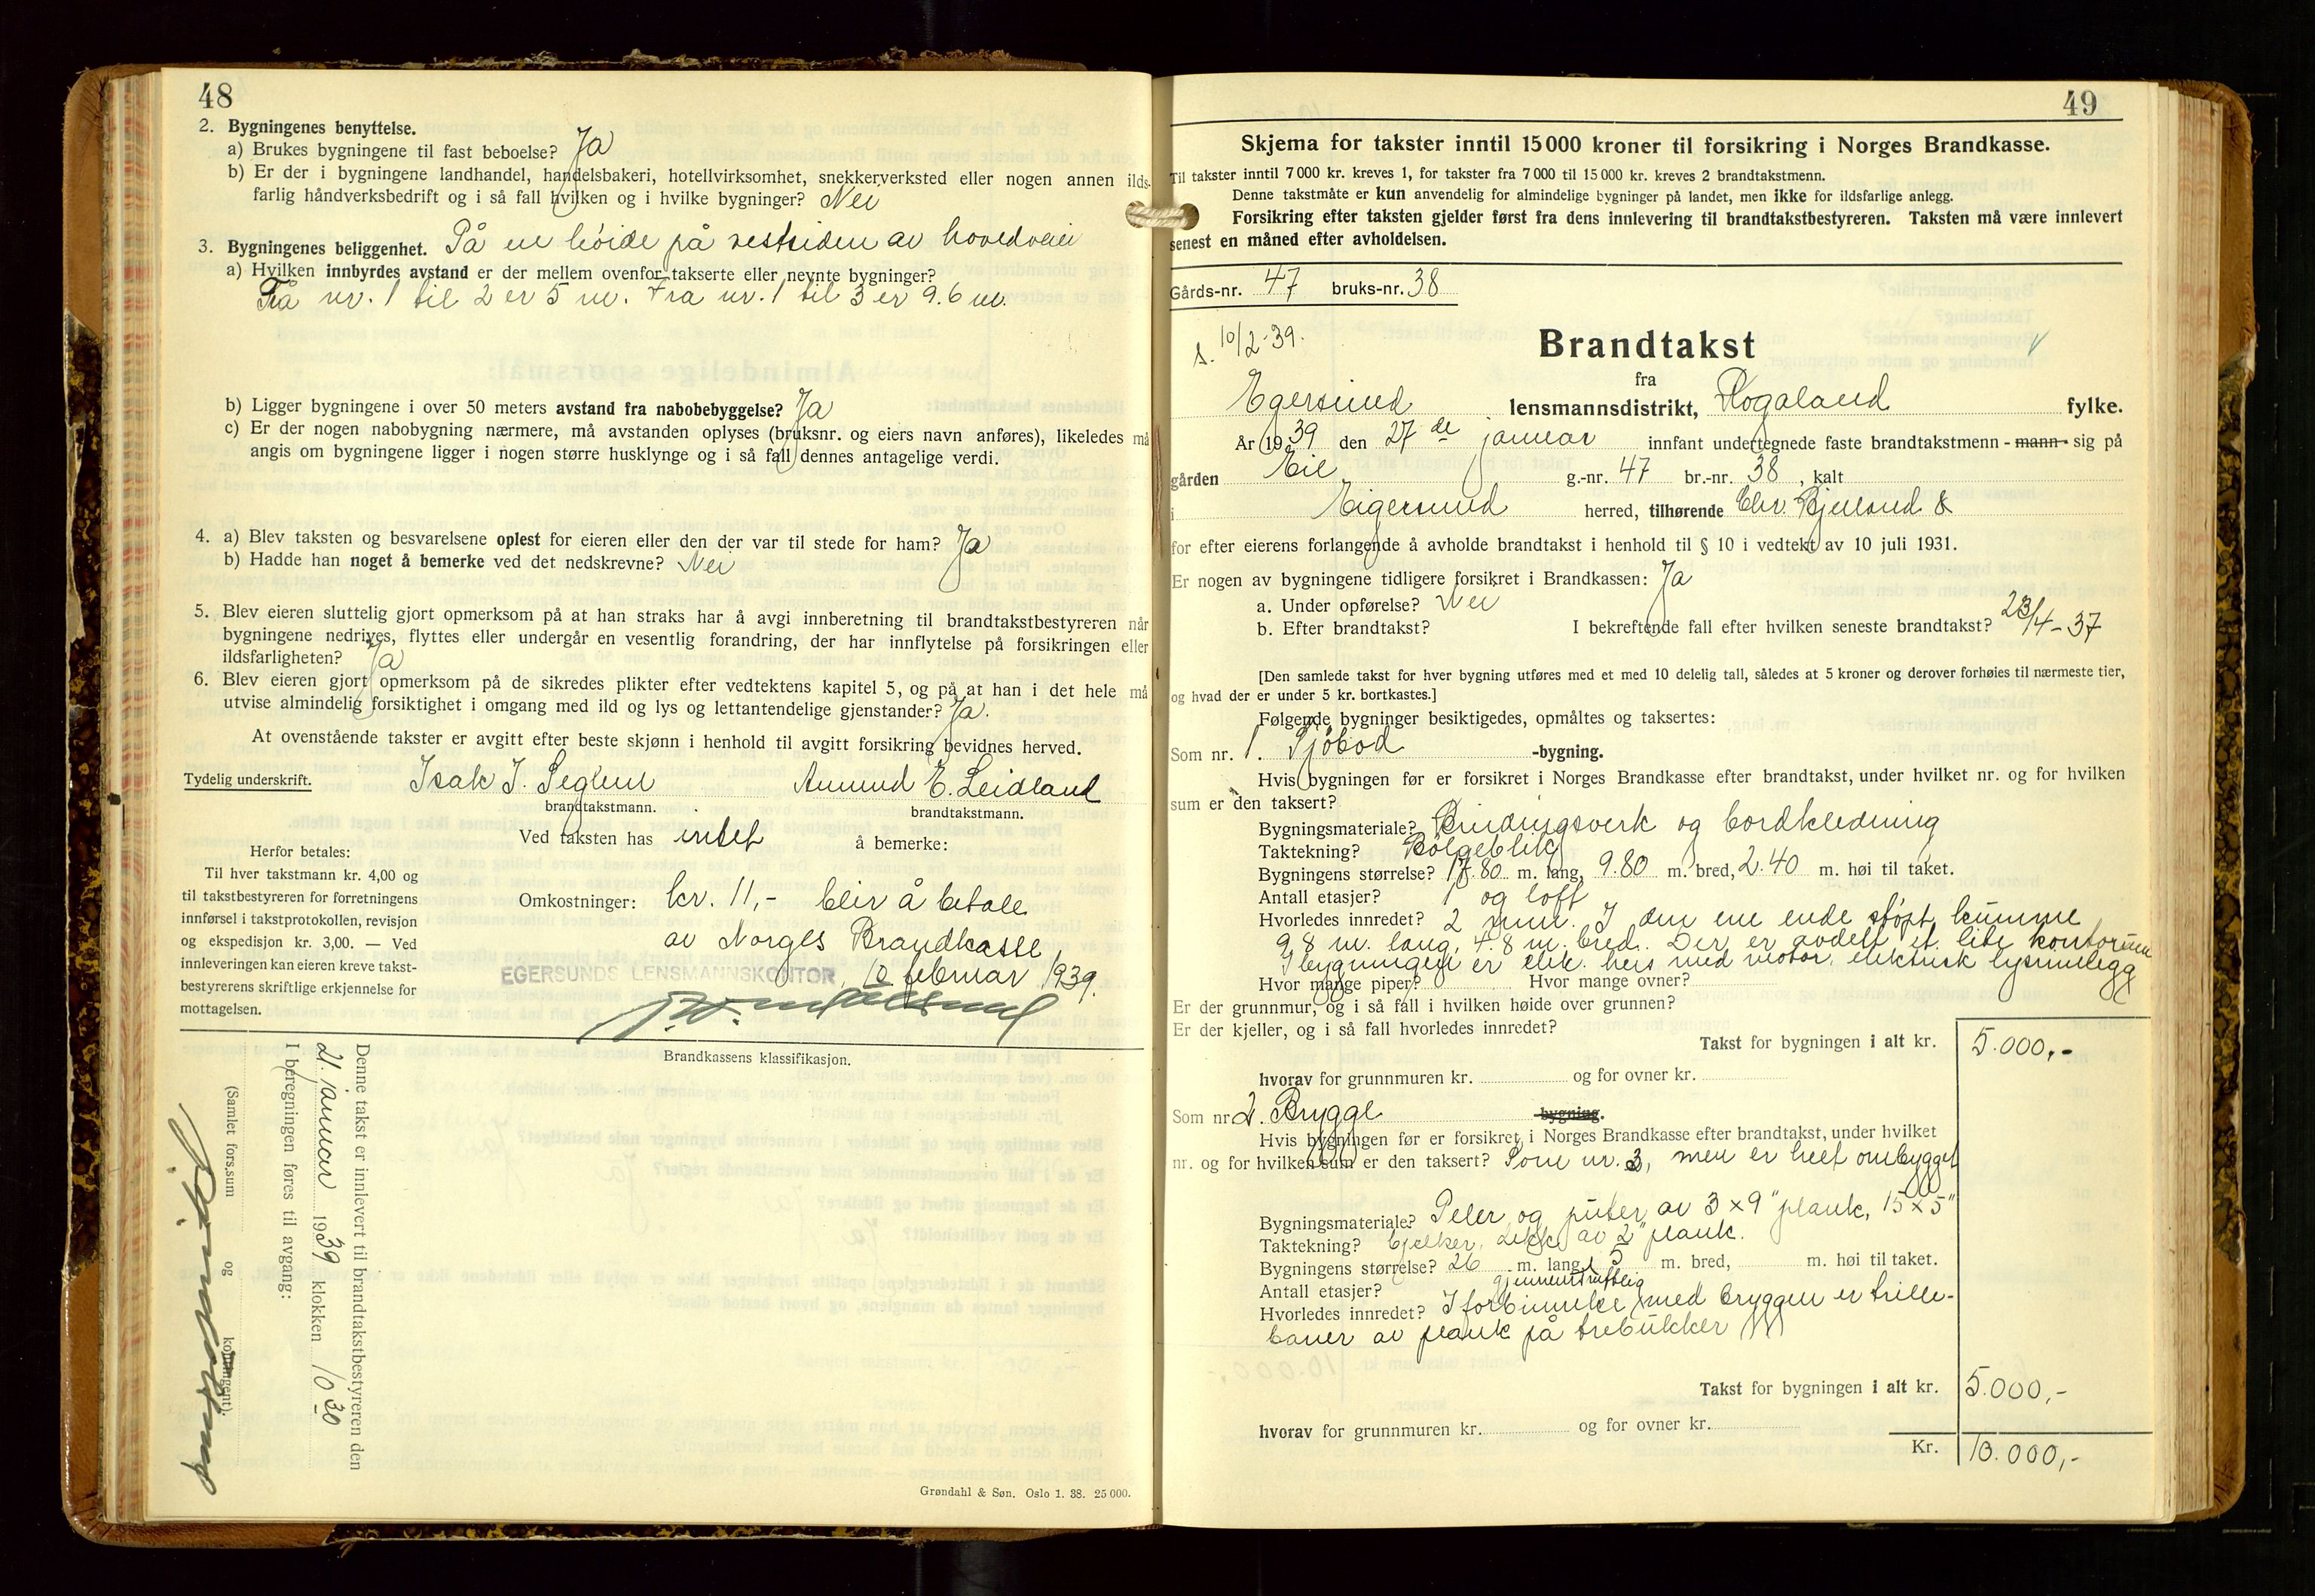 48
2. Bygningenes benyttelse.
a) Brukes bygningene til fast beboelse? Ja
b) Er der i bygningene landhandel, handelsbakeri, hotellvirksomhet, snekkerverksted eller nogen annen ilds-
farlig håndverksbedrift og i så fall hvilken og i hvilke bygninger? Nei
3. Bygningenes beliggenhet. På en høide på vestsiden av hovedveien
a) Hvilken innbyrdes avstand er der mellem ovenfor takserte eller nevnte bygninger?
Frå nr. 1 til 2 er 5 m. Fra nr. 1 til 3 er 9.6 m.
b) Ligger bygningene i over 50 meters avstand fra nabobebyggelse? Ja
c) Er der nogen nabobygning nærmere, må avstanden oplyses (bruksnr. og eiers navn anføres), likeledes må
angis om bygningene ligger i nogen større husklynge og i så fall dennes antagelige verdi.
4. a) Blev taksten og besvarelsene oplest for eieren eller den der var til stede for ham? Ja
b) Hadde han noget å bemerke ved det nedskrevne? Nei
5. Blev eieren sluttelig gjort opmerksom på at han straks har å avgi innberetning til brandtakstbestyreren når
bygningene nedrives, flyttes eller undergår en vesentlig forandring, der har innflytelse på forsikringen eller
ildsfarligheten? Ja
6. Blev eieren gjort opmerksom på de sikredes plikter efter vedtektens kapitel 5, og på at han i det hele må
utvise almindelig forsiktighet i omgang med ild og lys og lettantendelige gjenstander? Ja.
At ovenstående takster er avgitt efter beste skjønn i henhold til avgitt forsikring bevidnes herved.
Tydelig underskrift. Isak I. Seglem Amund E. Leidland
brandtakstmann. brandtakstmann.
Ved taksten has intet å bemerke:
Herfor betales:
Til hver takstmann kr. 4,00 og
til takstbestyreren for forretningens
innførsel i takstprotokollen, revisjon
og ekspedisjon kr. 3,00. — Ved
innleveringen kan eieren kreve takst-
bestyrerens skriftlige erkjennelse for
mottagelsen.
Omkostninger: kr. 11,- blir å betale
av Norges Brandkasse
EGERSUNDS LENSMANNSKONTOR, 10 februar 1939.
Brandkassens klassifikasjon.
Denne takst er innlevert til brandtakstbestyreren den
21. januar 1939 klokken 10 30
I beregningen føres til avgang:
(Samlet fors.sum og kontingent).
Grøndahl & Søn. Oslo 1. 38. 25 000.
49
Skjema for takster inntil 15 000 kroner til forsikring i Norges Brandkasse.
Til takster inntil 7 000 kr. kreves 1, for takster fra 7 000 til 15 000 kr. kreves 2 brandtakstmenn.
Denne takstmåte er kun anvendelig for almindelige bygninger på landet, men ikke for ildsfarlige anlegg.
Forsikring efter taksten gjelder først fra dens innlevering til brandtakstbestyreren. Taksten må være innlevert
senest en måned efter avholdelsen.
Gårds-nr. 47 bruks-nr. 38
s. 10/2-39.
Brandtakst
fra
Egersund lensmannsdistrikt, Rogaland fylke.
År 1939 den 27de januar innfant undertegnede faste brandtakstmenn - mann - sig på
gården Eie g.-nr. 47 br.-nr. 38, kalt
i Eigersund herred, tilhørende Chr. Bjelland &
for efter eierens forlangende å avholde brandtakst i henhold til § 10 i vedtekt av 10 juli 1931.
Er nogen av bygningene tidligere forsikret i Brandkassen: Ja
a. Under opførelse? Nei
b. Efter brandtakst? I bekreftende fall efter hvilken seneste brandtakst? 23/4-37
[Den samlede takst for hver bygning utføres med et med 10 delelig tall, således at 5 kroner og derover forhøies til nærmeste tier,
og hvad der er under 5 kr. bortkastes.]
Følgende bygninger besiktigedes, opmåltes og taksertes:
Som nr. 1. Sjøbod -bygning.
Hvis bygningen før er forsikret i Norges Brandkasse efter brandtakst, under hvilket nr. og for hvilken
sum er den taksert?
Bygningsmateriale? Bindingsverk og bordkledning
Taktekning? Bølgeblikk
Bygningens størrelse? 17.80 m. lang, 9.80 m. bred, 2.40 m. høi til taket.
Antall etasjer? 1 og loft
Hvorledes innredet? 2 rum. I den ene ende støpt kumme
9,8 m. lang, 4.8 m. bred. Der er avdelt et lite kontorrum
I bygningen er elek. heis med motor, elektrisk lysinnlegg
Hvor mange piper? Hvor mange ovner?
Er der grunnmur, og i så fall i hvilken høide over grunnen?
Er der kjeller, og i så fall hvorledes innredet?
Takst for bygningen i alt kr. 5.000,-
hvorav for grunnmuren kr. og for ovner kr.
Som nr 2. Brygge bygning.
Hvis bygningen før er forsikret i Norges Brandkasse efter brandtakst, under hvilket
nr. og for hvilken sum er den taksert? Som nr. 3, men er helt ombygget
Bygningsmateriale? Peler og puter av 3 x 9" plank, 15 x 5"
Taktekning? bjelker, dekk av 2" plank.
Bygningens størrelse? 26 m. lang, 5 m. bred, m. høi til taket.
Antall etasjer? gjennemsnittlig
Hvorledes innredet? I forbinnelse med bryggen er trille-
baner av plank på trebukker
Takst for bygningen i alt kr. 5.000,-
hvorav for grunnmuren kr. og for ovner kr.
Kr. 10.000,-